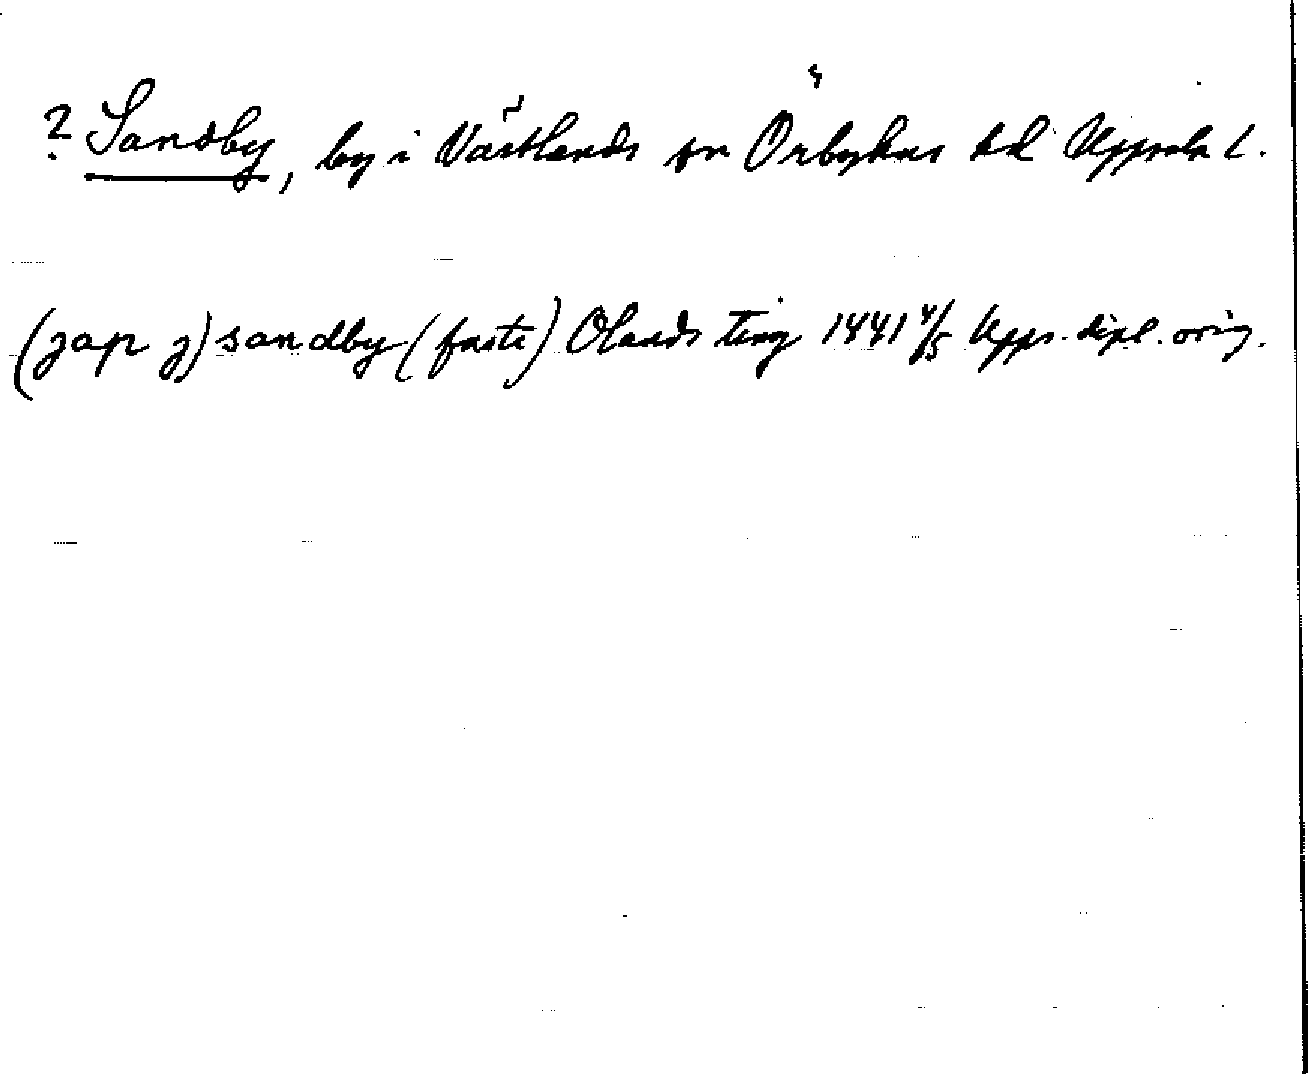 ? Sandby, by i Västlands sn Örbyhus hd Uppsala l.
(jap j) sandby (faste) Olands ting 1441 4/5 Upps. dipl. orig.